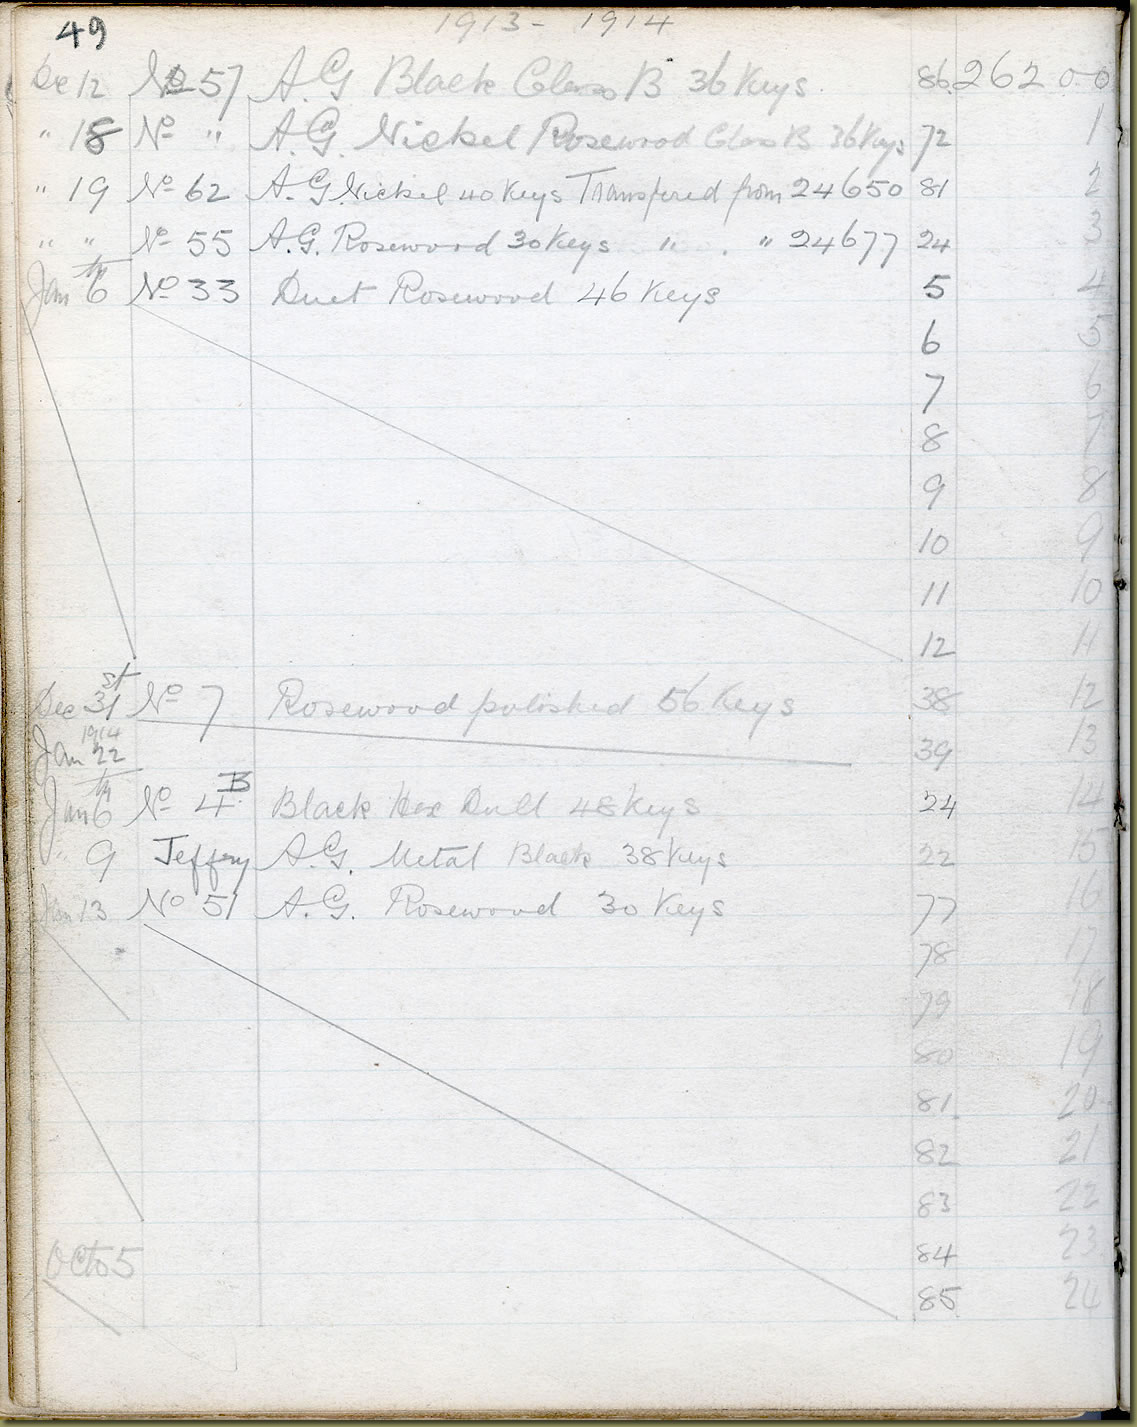 49 1913 - 1914
Dec 12 No 57 A.G Black Class B 36 Keys. 86 26200
" 18 No " A.G. Nickel Rosewood Class B 36 Keys 72 1
" 19 No 62 A.G. Nickel 40 Keys Transfered from 24650 81 2
" " No 55 A.G. Rosewood 30 Keys " " 24677 24 3
Jan 6th No 33 Duet Rosewood 46 Keys 5 4
6 5
7 6
8 7
9 8
10 9
11 10
12 11
Dec 31st No 7 Rosewood polished 56 Keys 38 12
1914
Jan 22 39 13
Jan 6th No 4B Black Hex Dull 48 Keys 24 14
" 9 Jeffery A.G. Metal Black 38 Keys 22 15
Jan 13 No 51 A.G. Rosewood 30 Keys 77 16
78 17
79 18
80 19
81 20
82 21
83 22
84 23
Octo 5
85 24